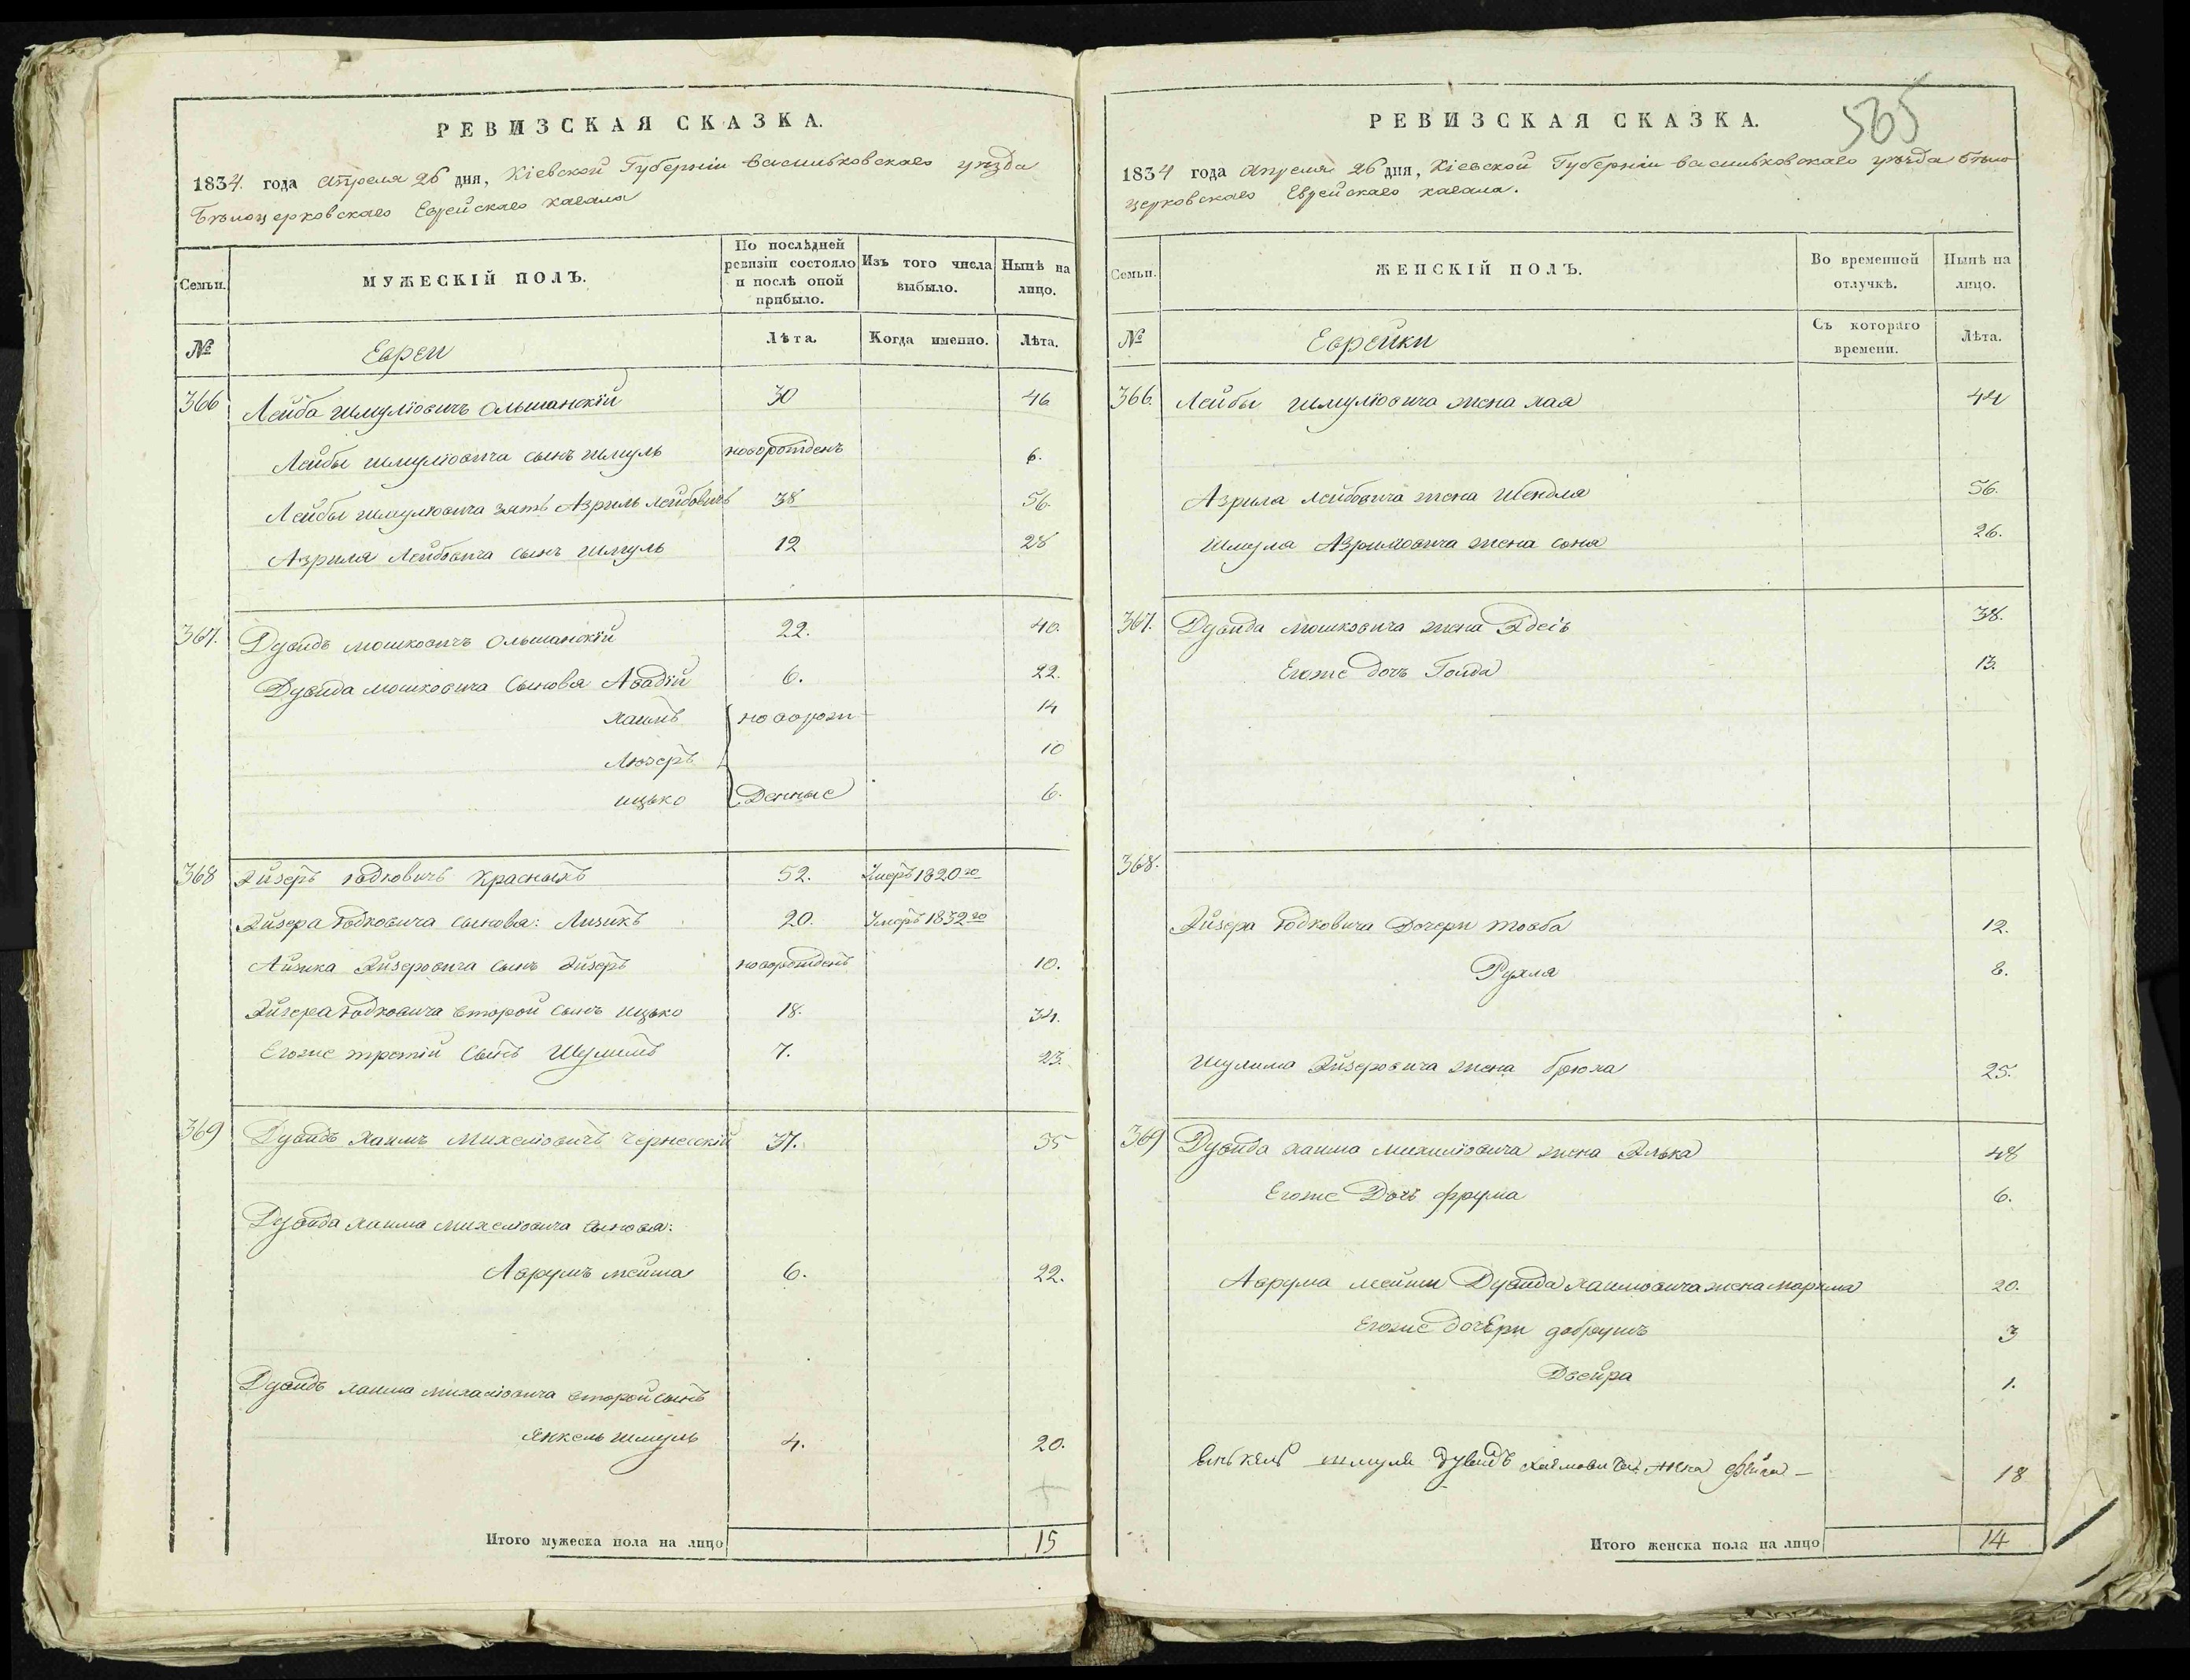 РЕВИЗСКАЯ СКАЗКА.
1834. года Апреля 26 дня, Кіевской Губерніи Васильковскаго уѣзда
Бѣлоцерковскаго Еврейскаго кагала
Семьи.
МУЖЕСКІЙ ПОЛЪ.
По послѣдней ревизіи состояло и послѣ оной прибыло.
Изъ того числа выбыло.
Нынѣ на лицо.
№
Евреи
Лѣта.
Когда именно.
Лѣта.
366 Лейба Шмулiовичъ Ольшанскiй 30 46
Лейбы Шмулiовича сынъ Шмуль новорожденъ 6.
Лейбы Шмулiовича зять Азриль Лейбовичъ 38 56.
Азриля Лейбовича сынъ Шмуль 12 28
367. Дувидъ Мошковичъ Ольшанскiй 22. 40.
Дувида Мошковича сыновя Авадiй 6. 22.
Хаимъ новорож 14
Люзеръ 10
Ицько денные 6.
368 Эйзеръ Юдковичъ Красныхъ 52. Умеръ 1820го
Эйзера Юдковича сыновя: Айзикъ 20. Умеръ 1832го
Айзика Эйзеровича сынъ Эйзеръ новорожденъ 10.
Эйзера Юдковича второй сынъ Ицько 18. 34.
Егоже третiй сынъ Шулимъ 7. 23.
369 Дувидъ Хаимъ Михелiовичъ 37. 55
Дувида Хаима Михелiовича сыновя:
Аврумъ Мейша 6. 22.
Дувидъ Хаима Михалiовича второй сынъ
Янкель Шмуль 4. 20.
Итого мужеска пола на лицо 15
565
РЕВИЗСКАЯ СКАЗКА.
1834 года Апреля 26 дня, Кіевской Губерніи Васильковскаго уѣзда Бѣло
церковскаго Еврейскаго кагала.
Семьи.
ЖЕНСКІЙ ПОЛЪ.
Во временной отлучкѣ.
Нынѣ на лицо.
№
Еврейки
Съ котораго времени.
Лѣта.
366. Лейбы Шмулiовича жена Хая 44
Азриля Лейбовича жена Шендля 56.
Шмуля Азрилiовича жена Соня 26.
367. Дувида Мошковича жена Эдесъ 38.
Егоже дочъ Голда 13.
368.
Эйзера Юдковича дочери Товба 12.
Рухля 8.
Шулима Эйзеровича жена Брюха 25.
369 Дувида Хаима Михилiовича жена Элька 48
Егоже дочъ Фрума 6.
Аврума Мейши Дувида Хаимовича жена 20.
Егоже дочери Добрушъ 3
Двейра 1.
Янькель Шмуля Дувидъ Хаимовича жена Фейга – 18
Итого женска пола на лицо 14